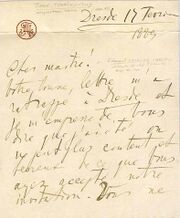 Dresde 17 Février
1889
Cher maître!
Votre bonne lettre m'a
retrouvé à Dresde et
je m'empresse de vous
dire que
on
ne peut plus content et
de ce que vous
avez accepté notre
invitation. Vous ne